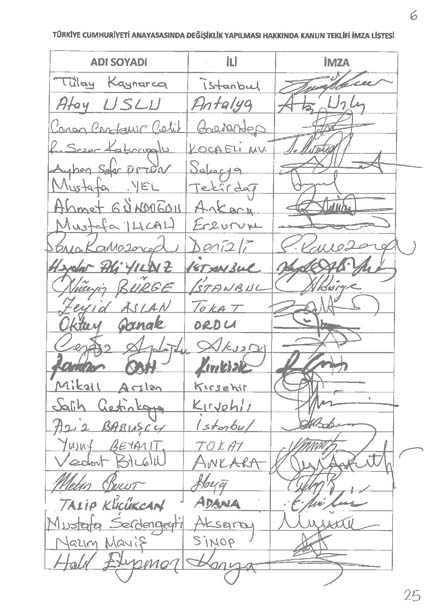 6
TÜRKİYE CUMHURİYETİ ANAYASASINDA DEĞİŞİKLİK YAPILMASI HAKKINDA KANUN TEKLİFİ İMZA LİSTESİ
ADI SOYADI İLİ İMZA
Tülay Kaynarca İstanbul
Atay USLU Antalya Atay Uslu
Canan Candemir Çelik Gaziantep
R. Sezer Katırcıoğlu KOCAELİ MV.
Ayhan Sefer ÜSTÜN Sakarya
Mustafa YEL Tekirdağ
Ahmet GÜNDOĞDU Ankara
Mustafa ILICALI Erzurum
Sema Ramazanoğlu Denizli
Haydar Ali YILDIZ İSTANBUL
Hüseyin BÜRGE İSTANBUL
Zeyid ASLAN TOKAT
Oktay Çanak ORDU
Cengiz Aydoğdu Aksaray
Ramazan CAN Kırıkkale
Mikail Arslan Kırşehir
Salih Çetinkaya Kırşehir
Aziz BABUŞCU İstanbul
Yusuf BEYAZIT TOKAT
Vedat BİLGİN ANKARA
Metin Bulut Elazığ
TALİP KÜÇÜKCAN ADANA
Mustafa Serdengeçti Aksaray
Nazım Maviş SİNOP
Halil Etyemez Konya
25